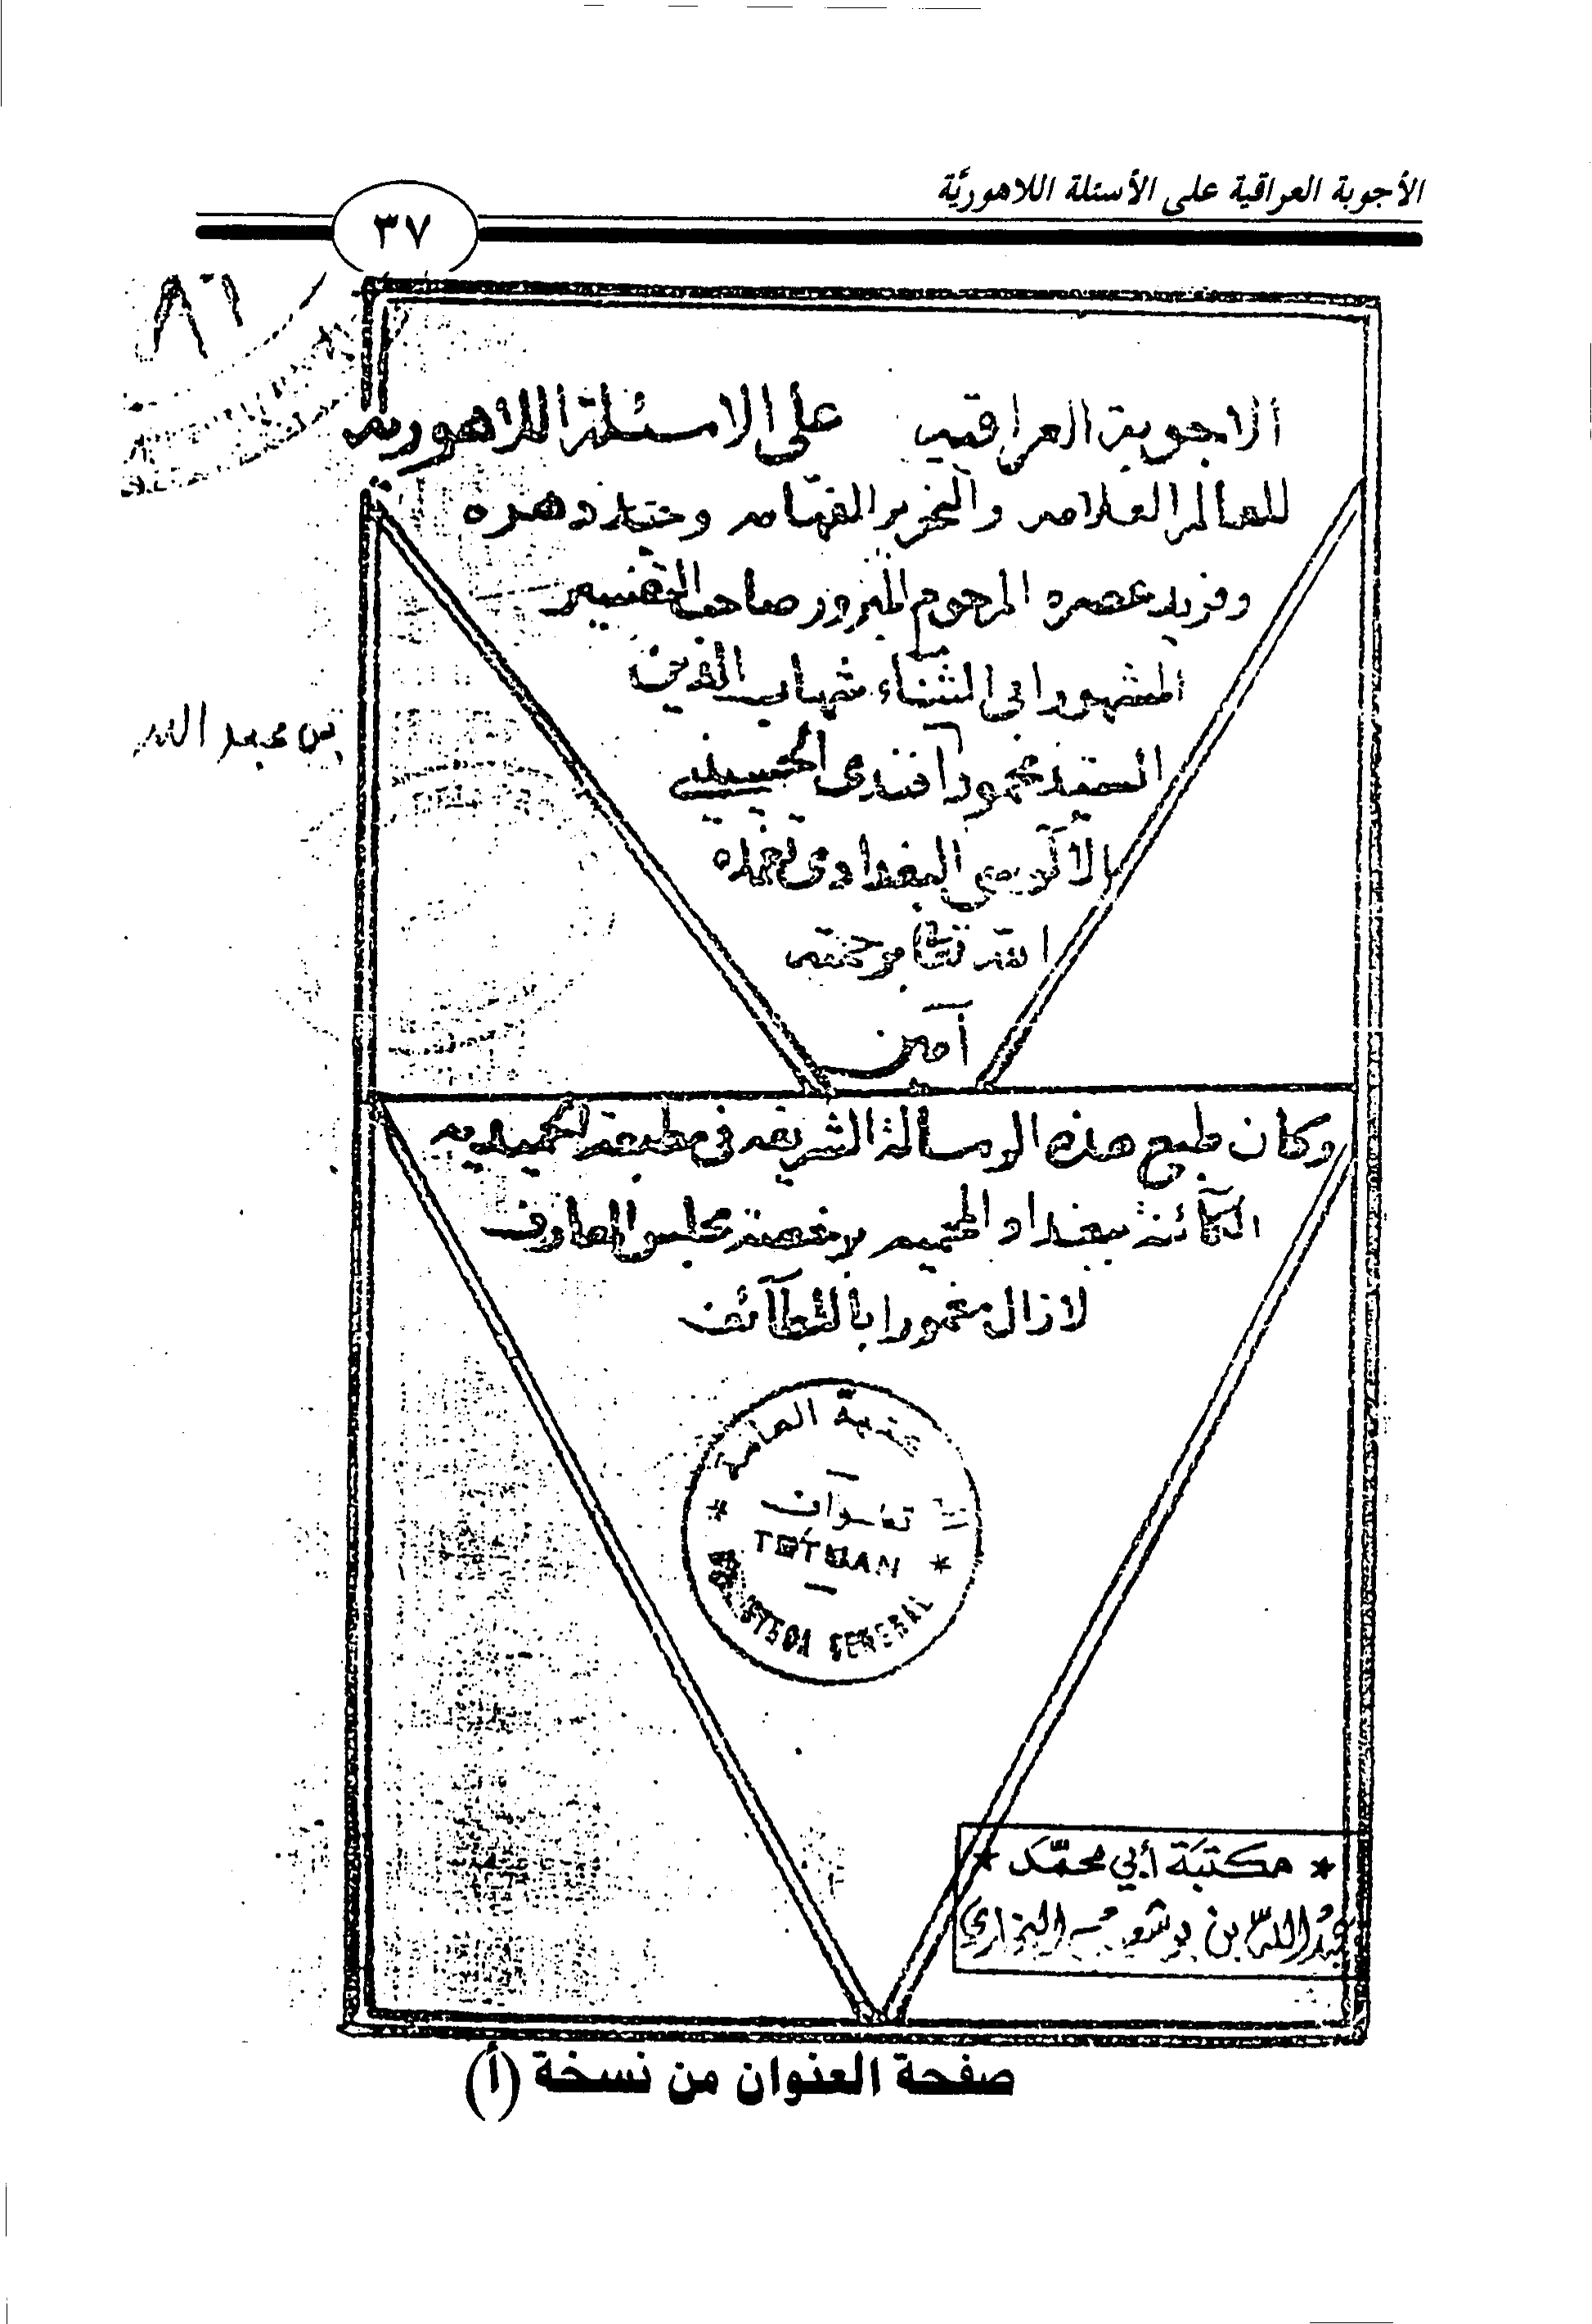 الأجوبة العراقية على الأسئلة اللاهوريَّة
٣٧
٨٦
الاجوبة العراقيه على الاسئلة اللاهوريه
للعالم العلامه والنحرير الفهامه وحيد دهره
وفريد عصره المرحوم المبرور صاحب التفسير
المشهور ابى الثناء شهاب الدين
السيد محمود افندى الحسينى
الآلوسى البغدادى تغمده
الله تعا برحمته
آمين
بن عبد الله
وكان طبع هذه الرسالة الشريفه فى مطبعة الحميديه
الكآئنة ببغداد المحميه برخصة مجلس المعارف
لازال مغمورا باللطآئف
العامة
تطوان
TETUAN
GENERAL
* مكتبَة أبي محمّد *
عبد اللّه بن بوشعيب البخاري
صفحة العنوان من نسخة (أ)